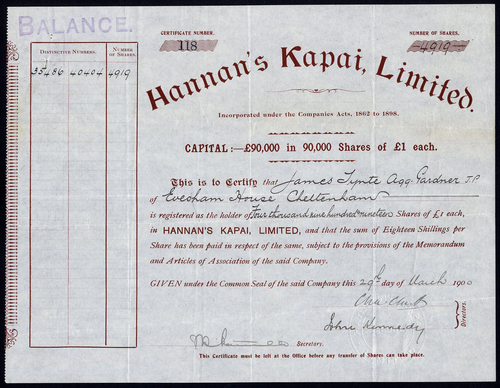 BALANCE.
CERTIFICATE NUMBER.
118
NUMBER OF SHARES.
-4919-
DISTINCTIVE NUMBERS.
NUMBER OF SHARES.
35486 40404 4919
Hannan's Kapai, Limited.
Incorporated under the Companies Acts, 1862 to 1898.
CAPITAL:—£90,000 in 90,000 Shares of £1 each.
This is to Certify that James Tynte Agg. Gardner J.P.
of Evesham House Cheltenham
is registered as the holder of Four thousand nine hundred & nineteen Shares of £1 each,
in HANNAN'S KAPAI, LIMITED, and that the sum of Eighteen Shillings per
Share has been paid in respect of the same, subject to the provisions of the Memorandum
and Articles of Association of the said Company.
GIVEN under the Common Seal of the said Company this 29th day of March 1900
John Kennedy
Directors.
Secretary.
This Certificate must be left at the Office before any transfer of Shares can take place.